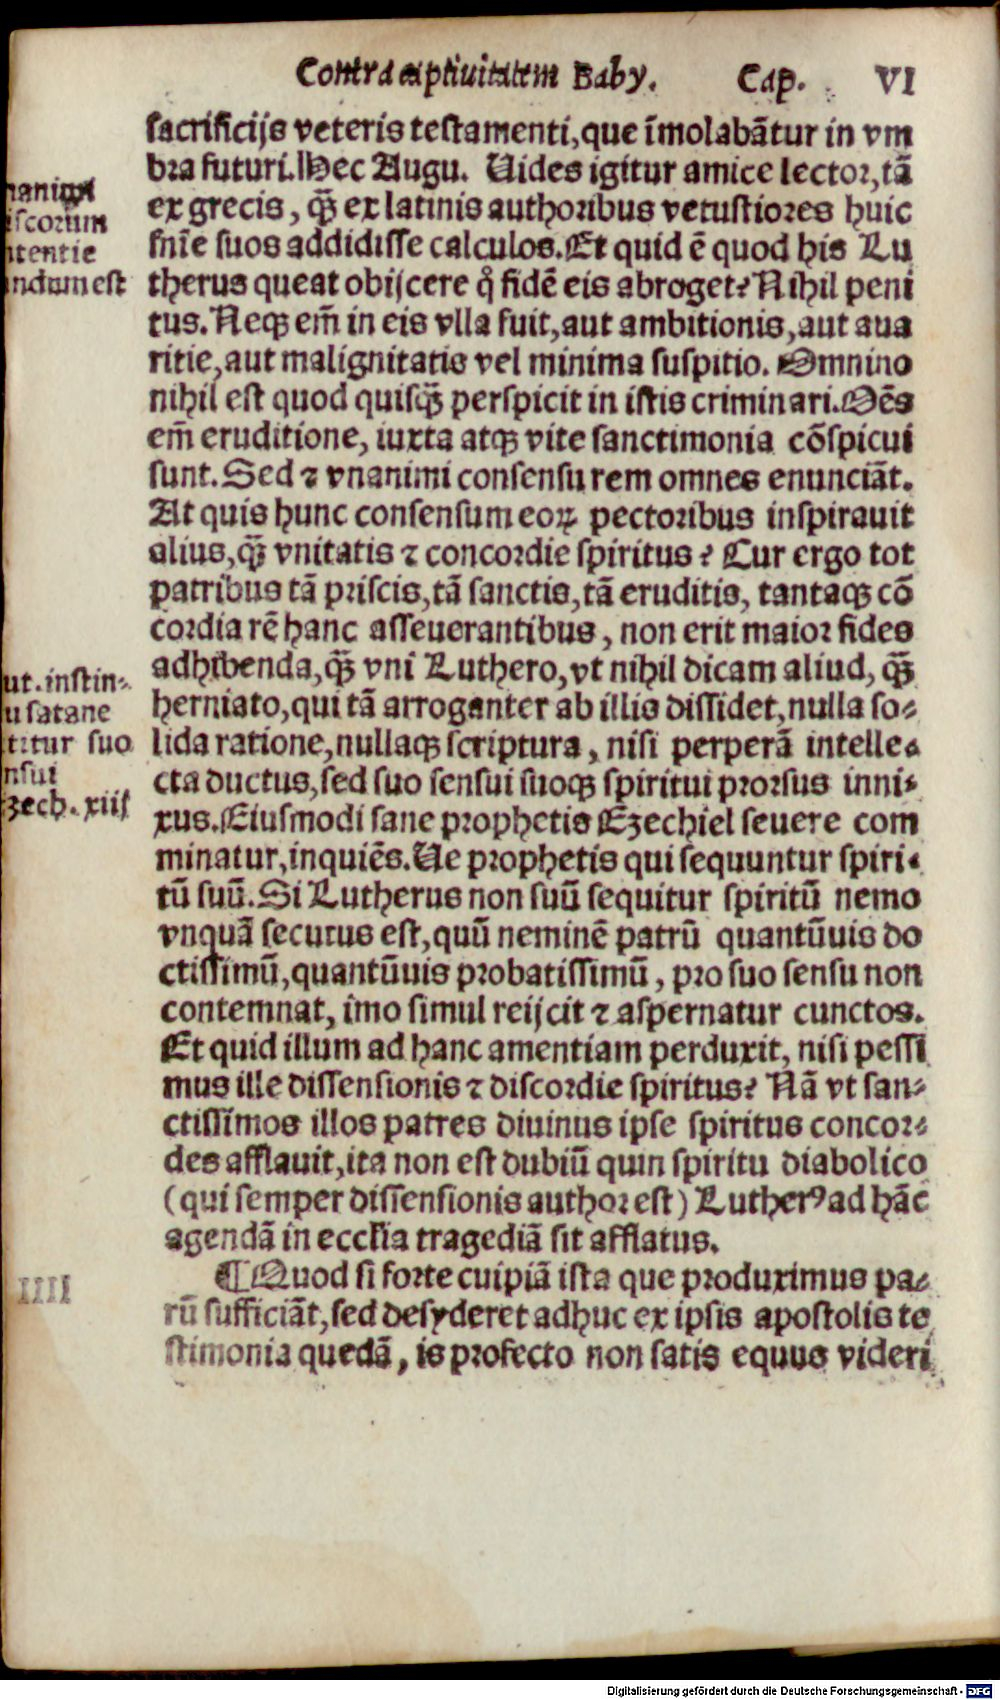 Contra captiuitatem Baby. Cap. VI
sacrificijs veteris testamenti,que īmolabātur in vm
bra futuri.Hec Augu. Uides igitur amice lector,tā
ex grecis, q̄ȝ ex latinis authoribus vetustiores huic
snīe suos addidisse calculos.Et quid ē quod his Lu
therus queat obijcere q° fidē eis abroget? Nihil peni
tus. Neqȝ em̄ in eis vlla fuit,aut ambitionis,aut aua
ritie,aut malignitatis vel minima suspitio. Omnino
nihil est quod quisq̄ȝ perspicit in istis criminari.Oēs
em̄ eruditione, iuxta atqȝ vite sanctimonia cōspicui
sunt. Sed ⁊ vnanimi consensu rem omnes enunciāt.
At quis hunc consensum eoꝝ pectoribus inspirauit
alius,q̄ȝ vnitatis ⁊ concordie spiritus? Cur ergo tot
patribus tā priscis,tā sanctis,tā eruditis, tantaqȝ cō
cordia rē hanc asseuerantibus, non erit maior fides
adhibenda,q̄ȝ vni Luthero,vt nihil dicam aliud, q̄ȝ
herniato,qui tā arroganter ab illis dissidet,nulla so⸗
lida ratione,nullaqȝ scriptura, nisi perperā intelle⸗
cta ductus,sed suo sensui suoqȝ spiritui prorsus inni⸗
xus.Eiusmodi sane prophetis Ezechiel seuere com
minatur,inquiēs.Ue prophetis qui sequuntur spiri⸗
tū suū. Si Lutherus non suū sequitur spiritū nemo
vnquā secutus est,quū neminē patrū quantūuis do
ctissimū,quantūuis probatissimū, pro suo sensu non
contemnat, imo simul reijcit ⁊ aspernatur cunctos.
Et quid illum ad hanc amentiam perduxit, nisi pessi
mus ille dissensionis ⁊ discordie spiritus? Nā vt san⸗
ctissimos illos patres diuinus ipse spiritus concor⸗
des afflauit,ita non est dubiū quin spiritu diabolico
(qui semper dissensionis author est) Lutherꝰ ad hāc
agendā in ecclia tragediā sit afflatus.
¶ Quod si forte cuipiā ista que produximus pa⸗
rū sufficiāt,sed desyderet adhuc ex ipsis apostolis te
stimonia quedā, is profecto non satis equus videri
nanimi
iscorum
ntentie
ndum est
ut. instin⸗
u satane
titur suo
nsui
zech. xiij
IIII
Digitalisierung gefördert durch die Deutsche Forschungsgemeinschaft - DFG